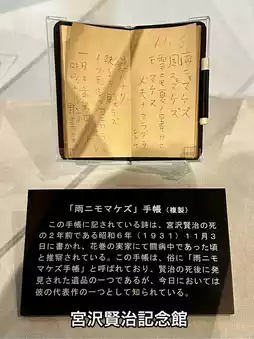 雨ニモマケズ
風ニモマケズ
「雨ニモマケズ」手帳（複製）
この手帳に記されている詩は、宮沢賢治の死
の２年前である昭和６年（1931）11月３
日に書かれ、花巻の実家にて闘病中であった頃
と推察されている。この手帳は、俗に「雨ニモ
マケズ手帳」と呼ばれており、賢治の死後に発
見された遺品の一つであるが、今日においては
彼の代表作の一つとして知られている。
宮沢賢治記念館